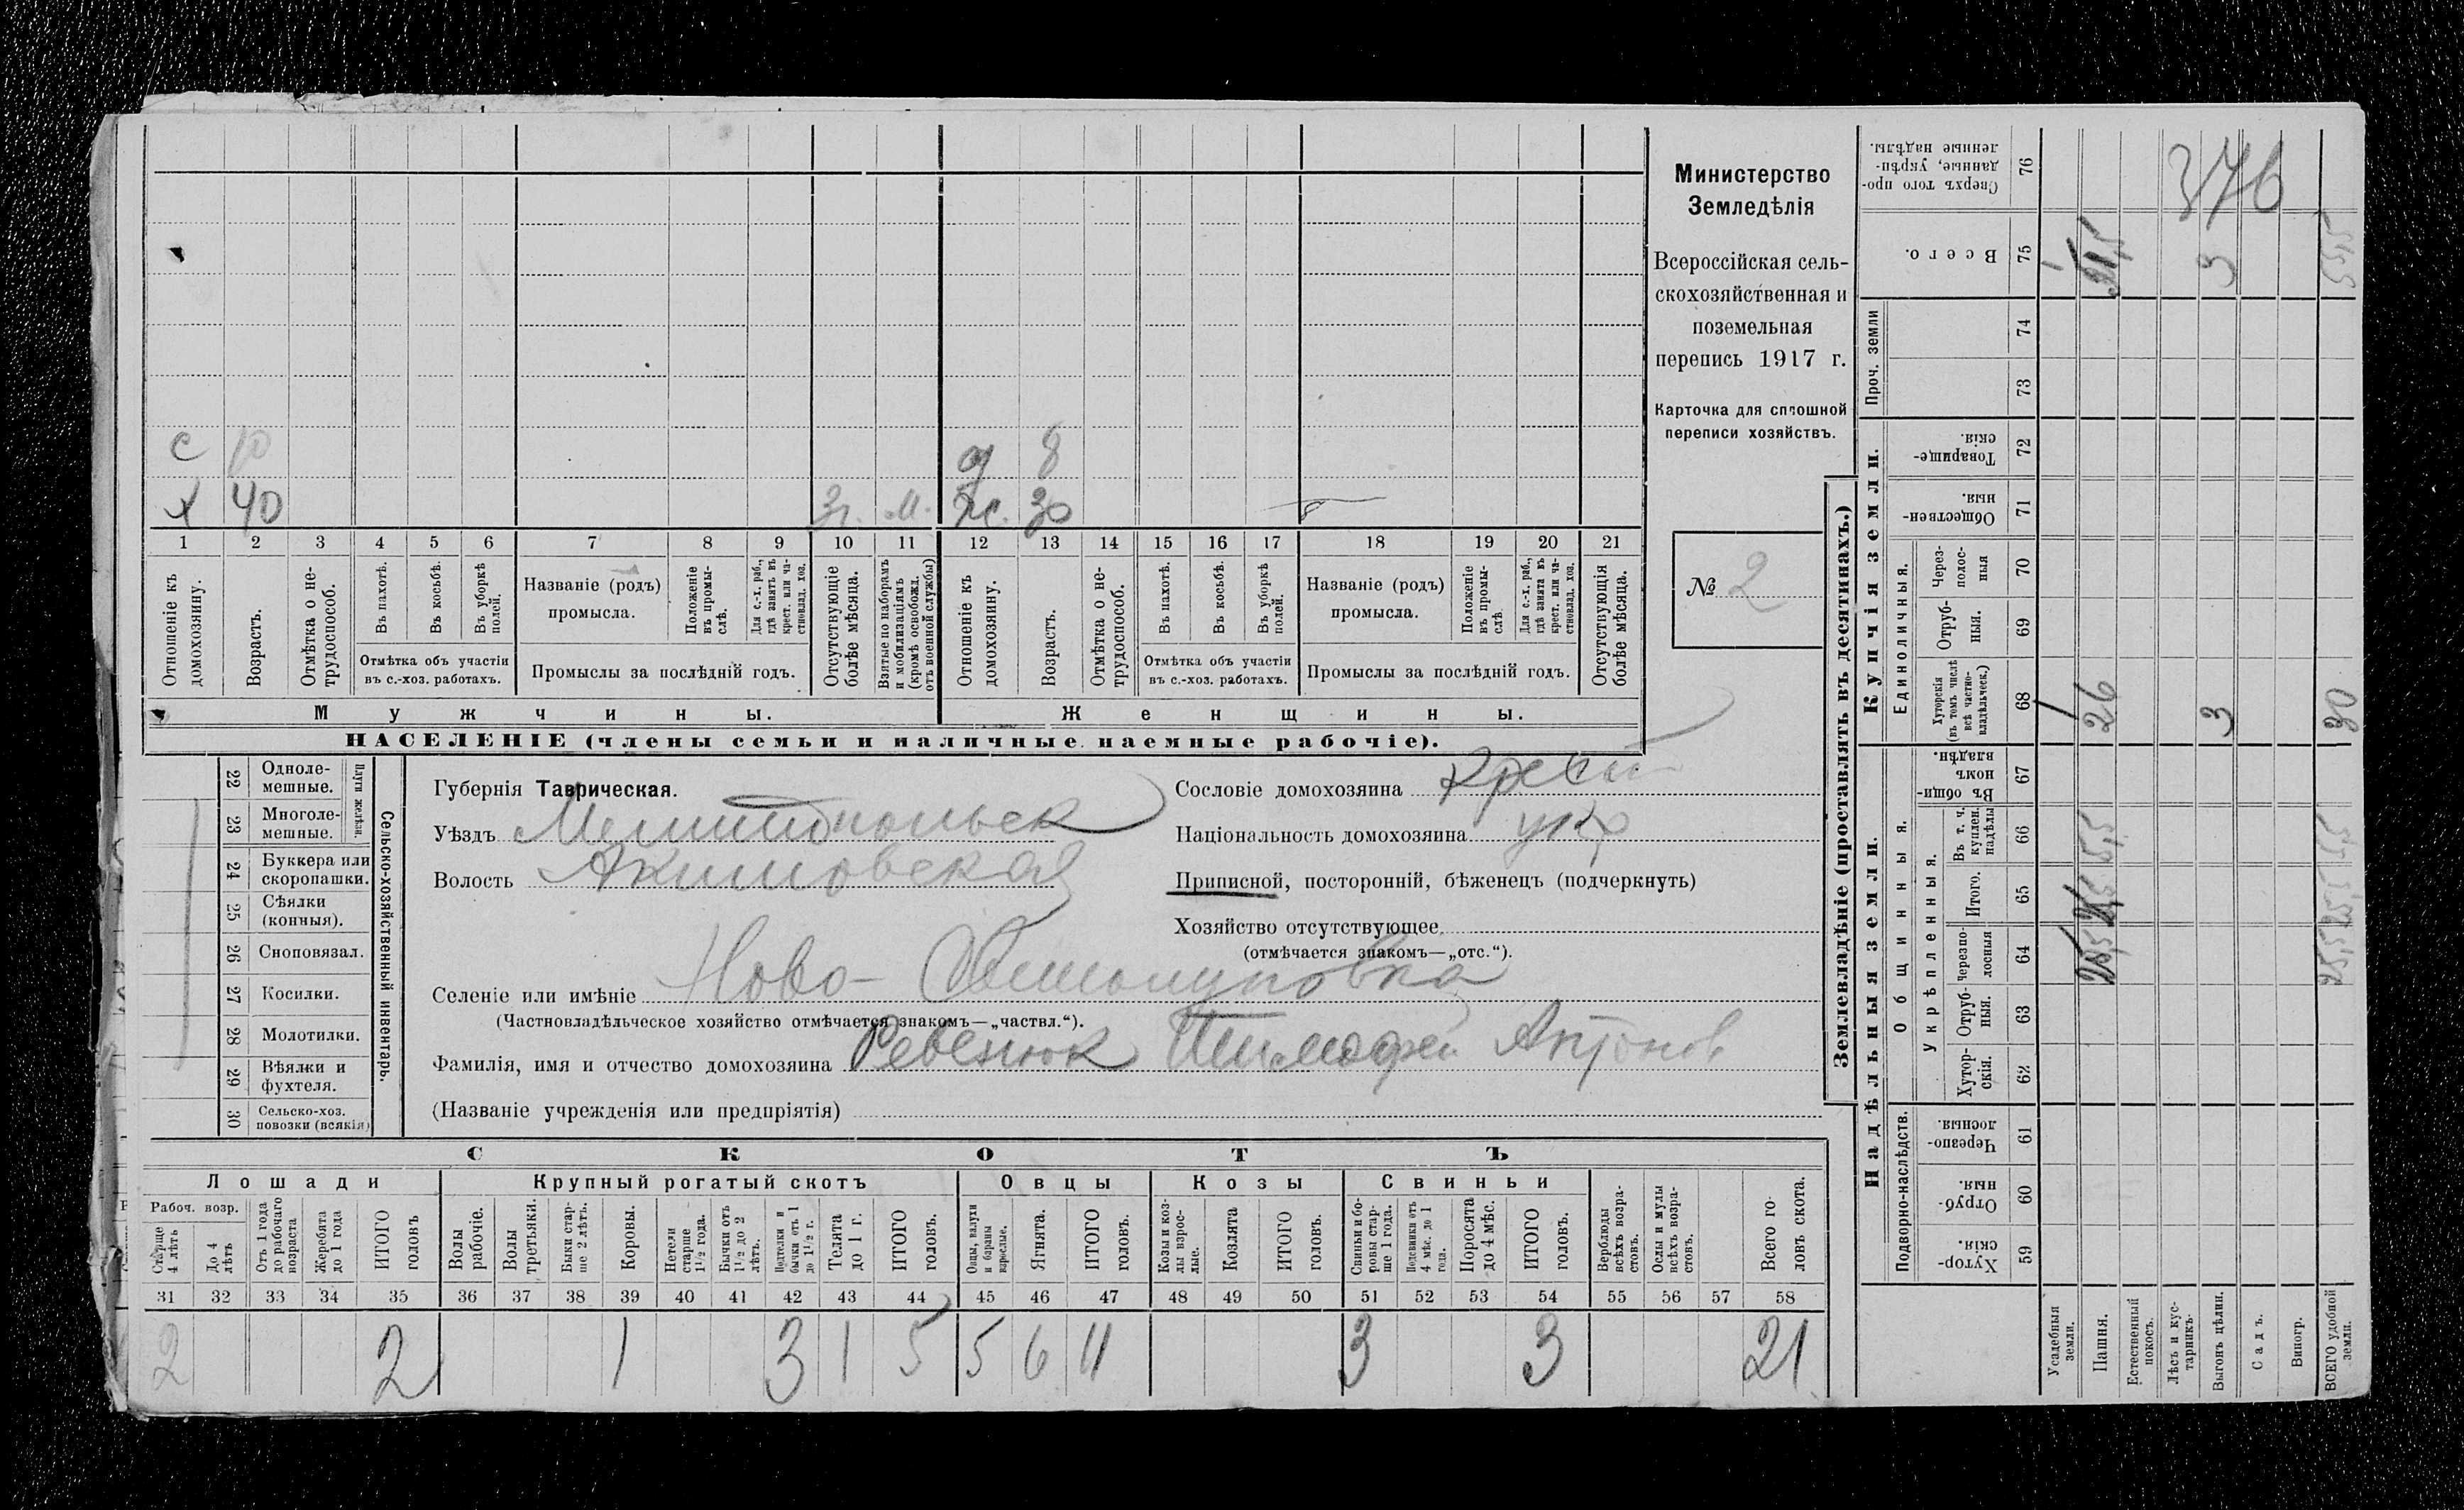 Министерство
Земледѣлія
Всероссійская сель-
скохозяйственная и
поземельная
перепись 1917 г.
Карточка для сплошной
переписи хозяйствъ.
№ 2
с 10
д 8
х 40 м. ж. 30
1 2 3 4 5 6 7 8 9 10 11 12 13 14 15 16 17 18 19 20 21
Отношеніе къ домохозяину.
Возрастъ.
Отмѣтка о не-трудоспособ.
Въ пахотѣ.
Въ косьбѣ.
Въ уборкѣ полей.
Отмѣтка объ участіи въ с.-хоз. работахъ.
Названіе (родъ) промысла.
Положеніе въ промы-слѣ.
Для с.-х. раб., гдѣ занятъ въ крест. или ча-стновлад. хоз.
Промыслы за послѣдній годъ.
Отсутствующіе болѣе мѣсяца.
Взятые по наборамъ и мобилизаціямъ (кромѣ освобожд. отъ военной службы)
Отношеніе къ домохозяину.
Возрастъ.
Отмѣтка о не-трудоспособ.
Въ пахотѣ.
Въ косьбѣ.
Въ уборкѣ полей.
Отмѣтка объ участіи въ с.-хоз. работахъ.
Названіе (родъ) промысла.
Положеніе въ промы-слѣ
Для с.-х. раб., гдѣ занята въ крест. или ча-стновлад. хоз.
Промыслы за послѣдній годъ.
Отсутствующія болѣе мѣсяца.
Мужчины. Женщины.
НАСЕЛЕНІЕ (члены семьи и наличные наемные рабочіе).
22 Одноле-мешные.
23 Многоле-мешные.
Плуги желѣзн.
24 Буккера или скоропашки.
25 Сѣялки (конныя).
26 Сноповязал.
27 Косилки.
28 Молотилки.
29 Вѣялки и фухтеля.
30 Сельско-хоз. повозки (всякія)
Сельско-хозяйственный инвентарь.
Губернія Таврическая.
Уѣздъ Мелитопольск
Волость Акимовская
Сословіе домохозяина крест
Національность домохозяина укр
Приписной, посторонній, бѣженецъ (подчеркнуть)
Хозяйство отсутствующее
(отмѣчается знакомъ—„отс.“).
Селеніе или имѣніе Ново-
(Частновладѣльческое хозяйство отмѣчается знакомъ—„частвл.“).
Фамилія, имя и отчество домохозяина Ревенюк Тимофей Антонов
(Названіе учрежденія или предпріятія)
СКОТЪ
Лошади Крупный рогатый скотъ Овцы Козы Свиньи
Рабоч. возр.
Старше 4 лѣтъ
До 4 лѣтъ
Отъ 1 года до рабочаго возраста
Жеребята до 1 года
ИТОГО головъ
Волы рабочіе.
Волы третьяки.
Быки стар-ше 2 лѣтъ.
Коровы.
Нетели старше 1½ года.
Бычки отъ 1½ до 2 лѣтъ.
Подтелки и бычки отъ 1 до 1½ г.
Телята до 1 г.
ИТОГО головъ.
Овцы, валухи и бараны взрослые.
Ягнята.
ИТОГО головъ.
Козы и коз-лы взрос-лые.
Козлята
ИТОГО головъ.
Свиньи и бо-ровы стар-ше 1 года.
Подсвинки отъ 4 мѣс. до 1 года.
Поросята до 4 мѣс.
ИТОГО головъ.
Верблюды всѣхъ возра-стовъ.
Ослы и мулы всѣхъ возра-стовъ.
Всего го-ловъ скота.
31 32 33 34 35 36 37 38 39 40 41 42 43 44 45 46 47 48 49 50 51 52 53 54 55 56 57 58
2 2 1 3 1 5 5 6 11 3 3 21
Землевладѣніе (проставлять въ десятинахъ.)
Надѣльныя земли. Купчія земли.
Подворно-наслѣдств.
Общинныя.
Укрѣпленныя.
Единоличныя.
Проч. земли
Хутор-скія. 59
Отруб-ныя. 60
Черезпо-лосныя. 61
Хутор-скія. 62
Отруб-ныя. 63
Черезпо-лосныя 64
Итого. 65
Въ т. ч. куплен. надѣлы 66
Въ общи-номъ владѣн. 67
Хуторскія (въ томъ числѣ всѣ частно-владѣльческ.) 68
Отруб-ныя. 69
Через-полос-ныя 70
Обществен-ныя. 71
Товарище-скія. 72
73
74
Всего. 75
Сверхъ того про-данные, укрѣп-ленные надѣлы. 76
Усадебныя земли. 1
Пашня. 25,5 5,5 26
Естественный покосъ.
Лѣсъ и кус-тарникъ.
Выгонъ цѣлин. 3 3
Садъ.
Виногр.
ВСЕГО удобной земли. 25,5 25,5 5,5 30 55,5
376